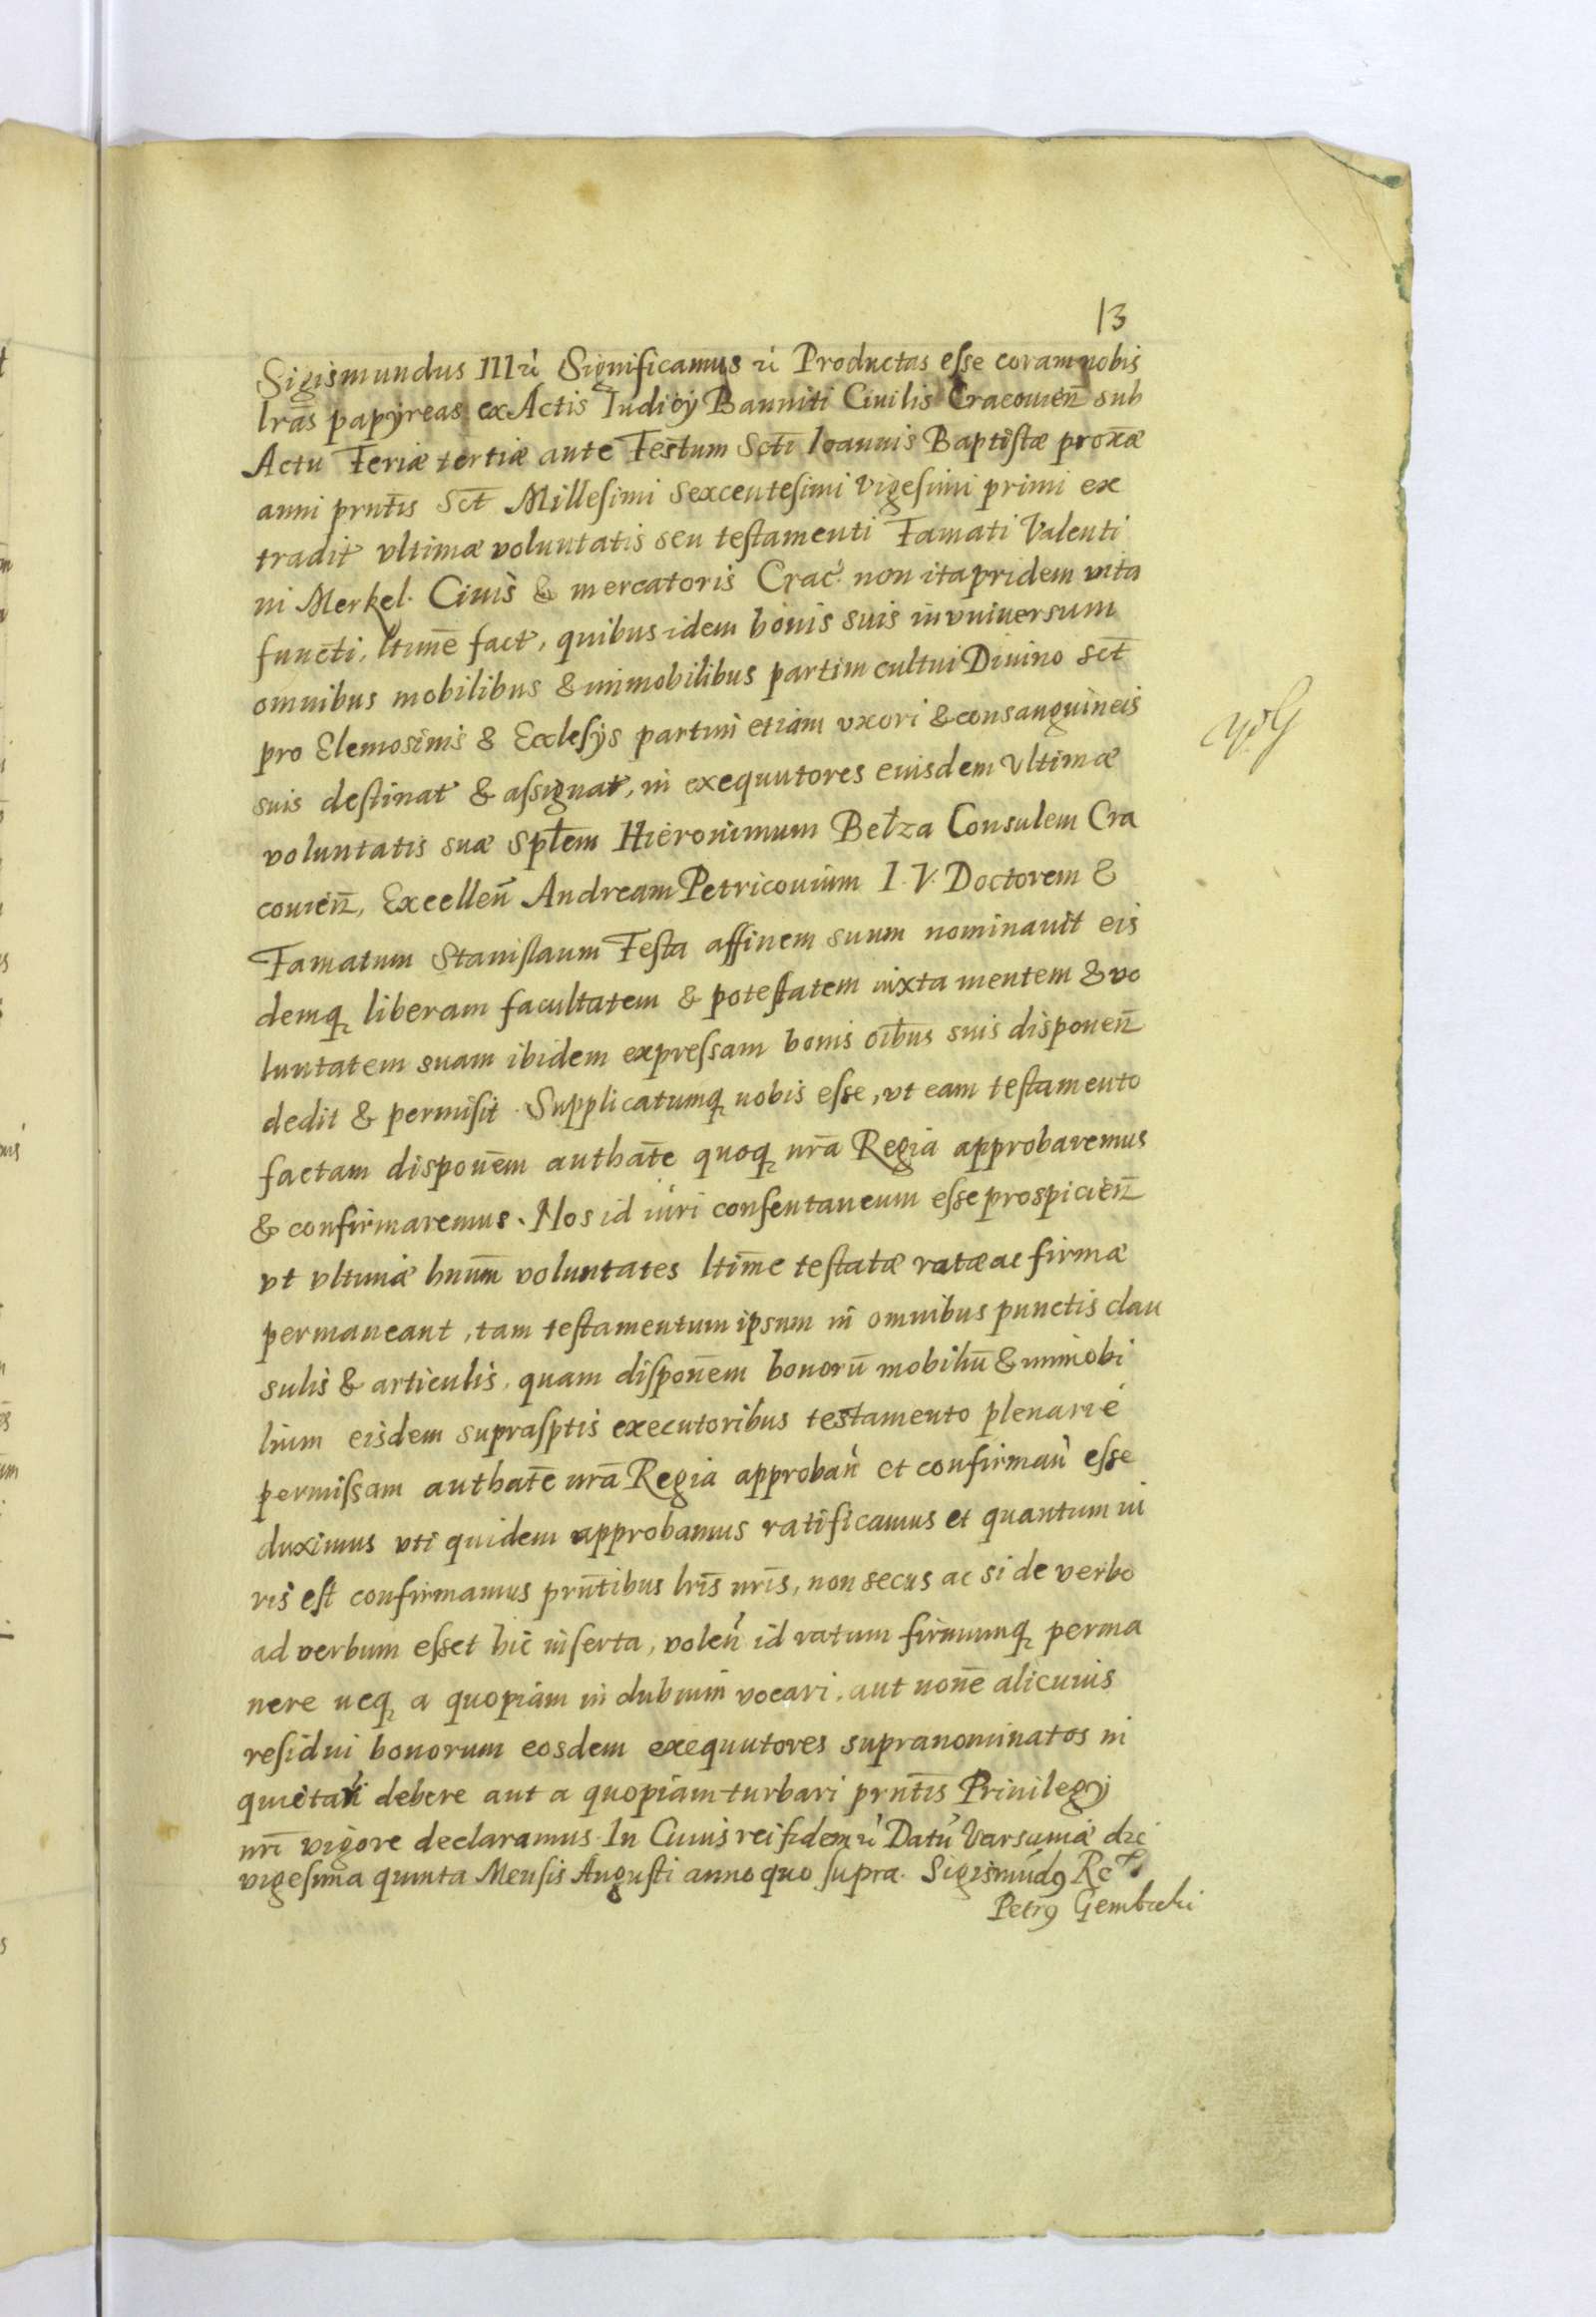 13
Sigismundus III ꝛ̀ Significamus ꝛ̀ Productas esse coram nobis
lrãs papyreas ex Actis Iudicy Banniti Ciuilis Cracouien̄ sub
Actu Feriæ tertiæ ante Festum Scti Ioannis Baptistæ proxæ
anni prntis sct Millesimi sexcentesimi vigesimi primi ex
tradit vltimæ voluntatis seu testamenti Famati Valenti
ni Merkel. Ciuis & mercatoris Crac. non ita pridem vita
functi, ltime fact, quibus idem bonis suis in vniuersum
omnibus mobilibus & immobilibus partim cultui Diuino sct
pro Elemosinis & Ecclesys partim etiam vxori & consanguineis
suis destinat & assignat, in exequutores eiusdem vltimæ
voluntatis suæ Spłem Hieronimum Bełza Consulem Cra
couien̄, Excellen̄ Andream Petricouium I. V. Doctorem &
Famatum Stanislaum Testa affinem suum nominauit eis
demq liberam facultatem & potestatem iuxta mentem & vo
luntatem suam ibidem expressam bonis oibus suis disponen̄
dedit & permisit. Supplicatumq nobis esse, vt eam testamento
factam disponem authate quoq nra Regia approbaremus
& confirmaremus. Nos id iuri consentaneum esse prospicien̄
vt vltimæ hnum voluntates ltime testatæ ratæ ac firmæ
permaneant, tam testamentum ipsum in omnibus punctis clau
sulis & articulis, quam disponem bonorū mobiliū & immobi
lium eisdem suprasptis executoribus testamento plenarie
permissam authate nra Regia approban̄ et confirman̄ esse
duximus vti quidem approbamus ratificamus et quantum iu
ris est confirmamus prntibus lris nris, non secus ac si de verbo
ad verbum esset hic inserta, volen̄ id ratum firmumq perma
nere neq a quopiam in dubium vocari, aut none alicuius
residui bonorum eosdem exequutores supranominatos in
quietari debere aut a quopiam turbari prntis Priuilegy
nri vigore declaramus. In Cuius rei fidem ꝛ̀ Datū Varsauiæ die
vigesima quinta Mensis Augusti anno quo supra. Sigismūdꝰ Rex
Petrꝰ Gembicki